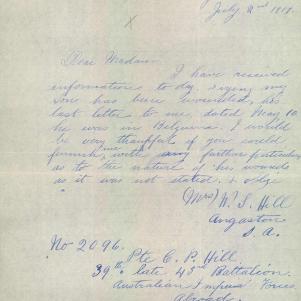 July 2nd 1918.
Dear Madam
I have received
information to day, saying my
son has been wounded, his
last letter to me, dated May 10
he was in Belgium. I would
be very thankful if you could
furnish me with any further particulars
as to the nature of his wounds
as it was not stated, & oblge
(Mrs) W. S. Hill
Angaston
S. A.
No 2096.
Pte C. P. Hill
39th late 43rd Battalion.
Australian Imperial Forces
Abroad.